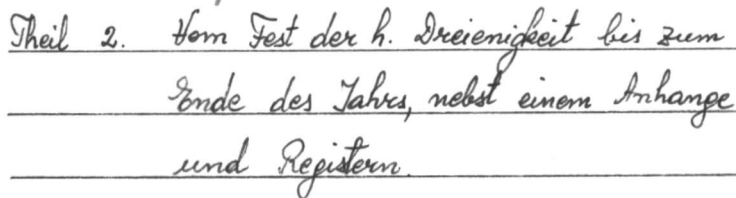 Theil 2. Vom Fest der h. Dreienigkeit bis zum
Ende des Jahrs, nebst einem Anhange
und Registern.